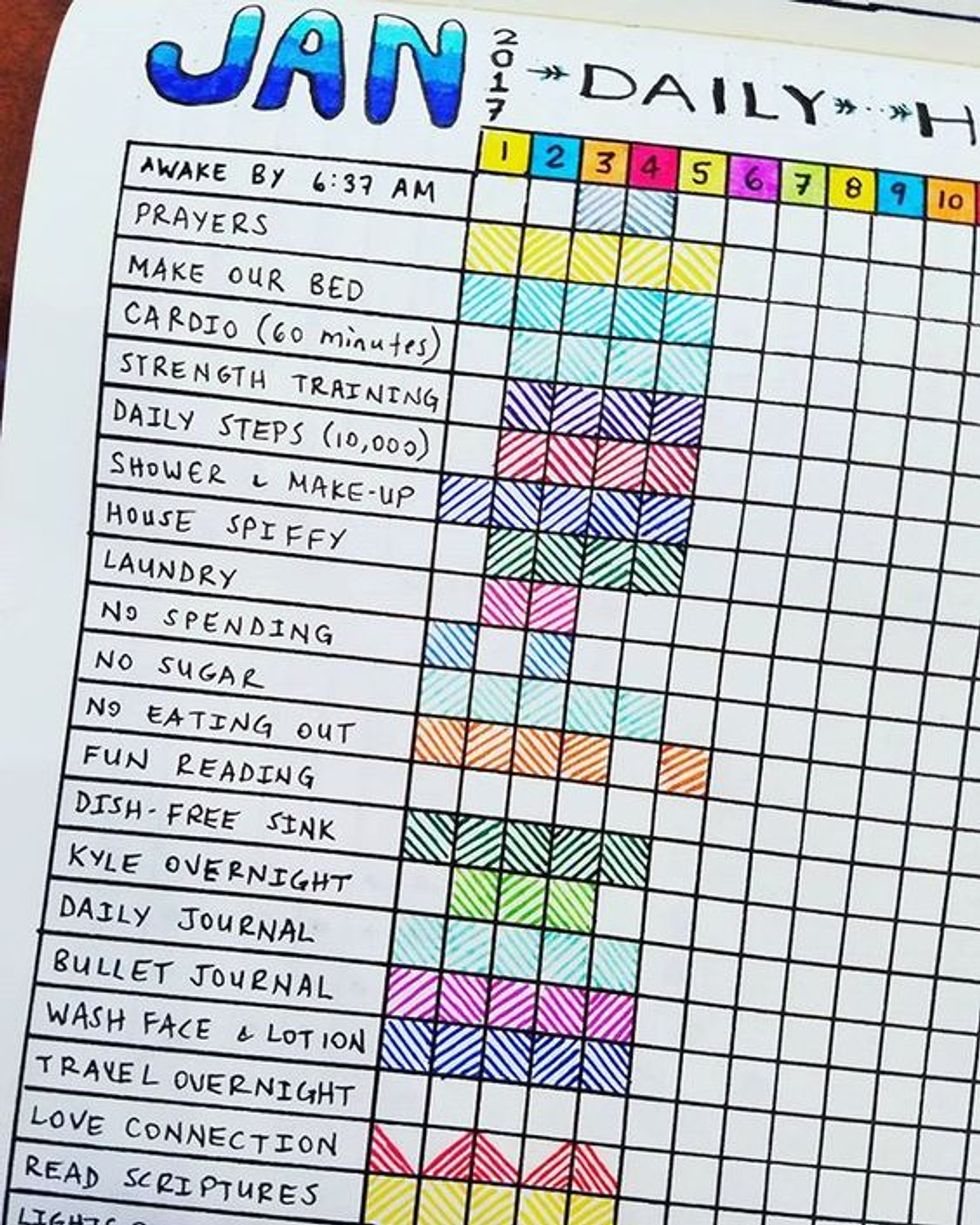 JAN 2017 DAILY H
1 2 3 4 5 6 7 8 9 10
AWAKE BY 6:37 AM
PRAYERS
MAKE OUR BED
CARDIO (60 minutes)
STRENGTH TRAINING
DAILY STEPS (10,000)
SHOWER & MAKE-UP
HOUSE SPIFFY
LAUNDRY
NO SPENDING
NO SUGAR
NO EATING OUT
FUN READING
DISH-FREE SINK
KYLE OVERNIGHT
DAILY JOURNAL
BULLET JOURNAL
WASH FACE & LOTION
TRAVEL OVERNIGHT
LOVE CONNECTION
READ SCRIPTURES